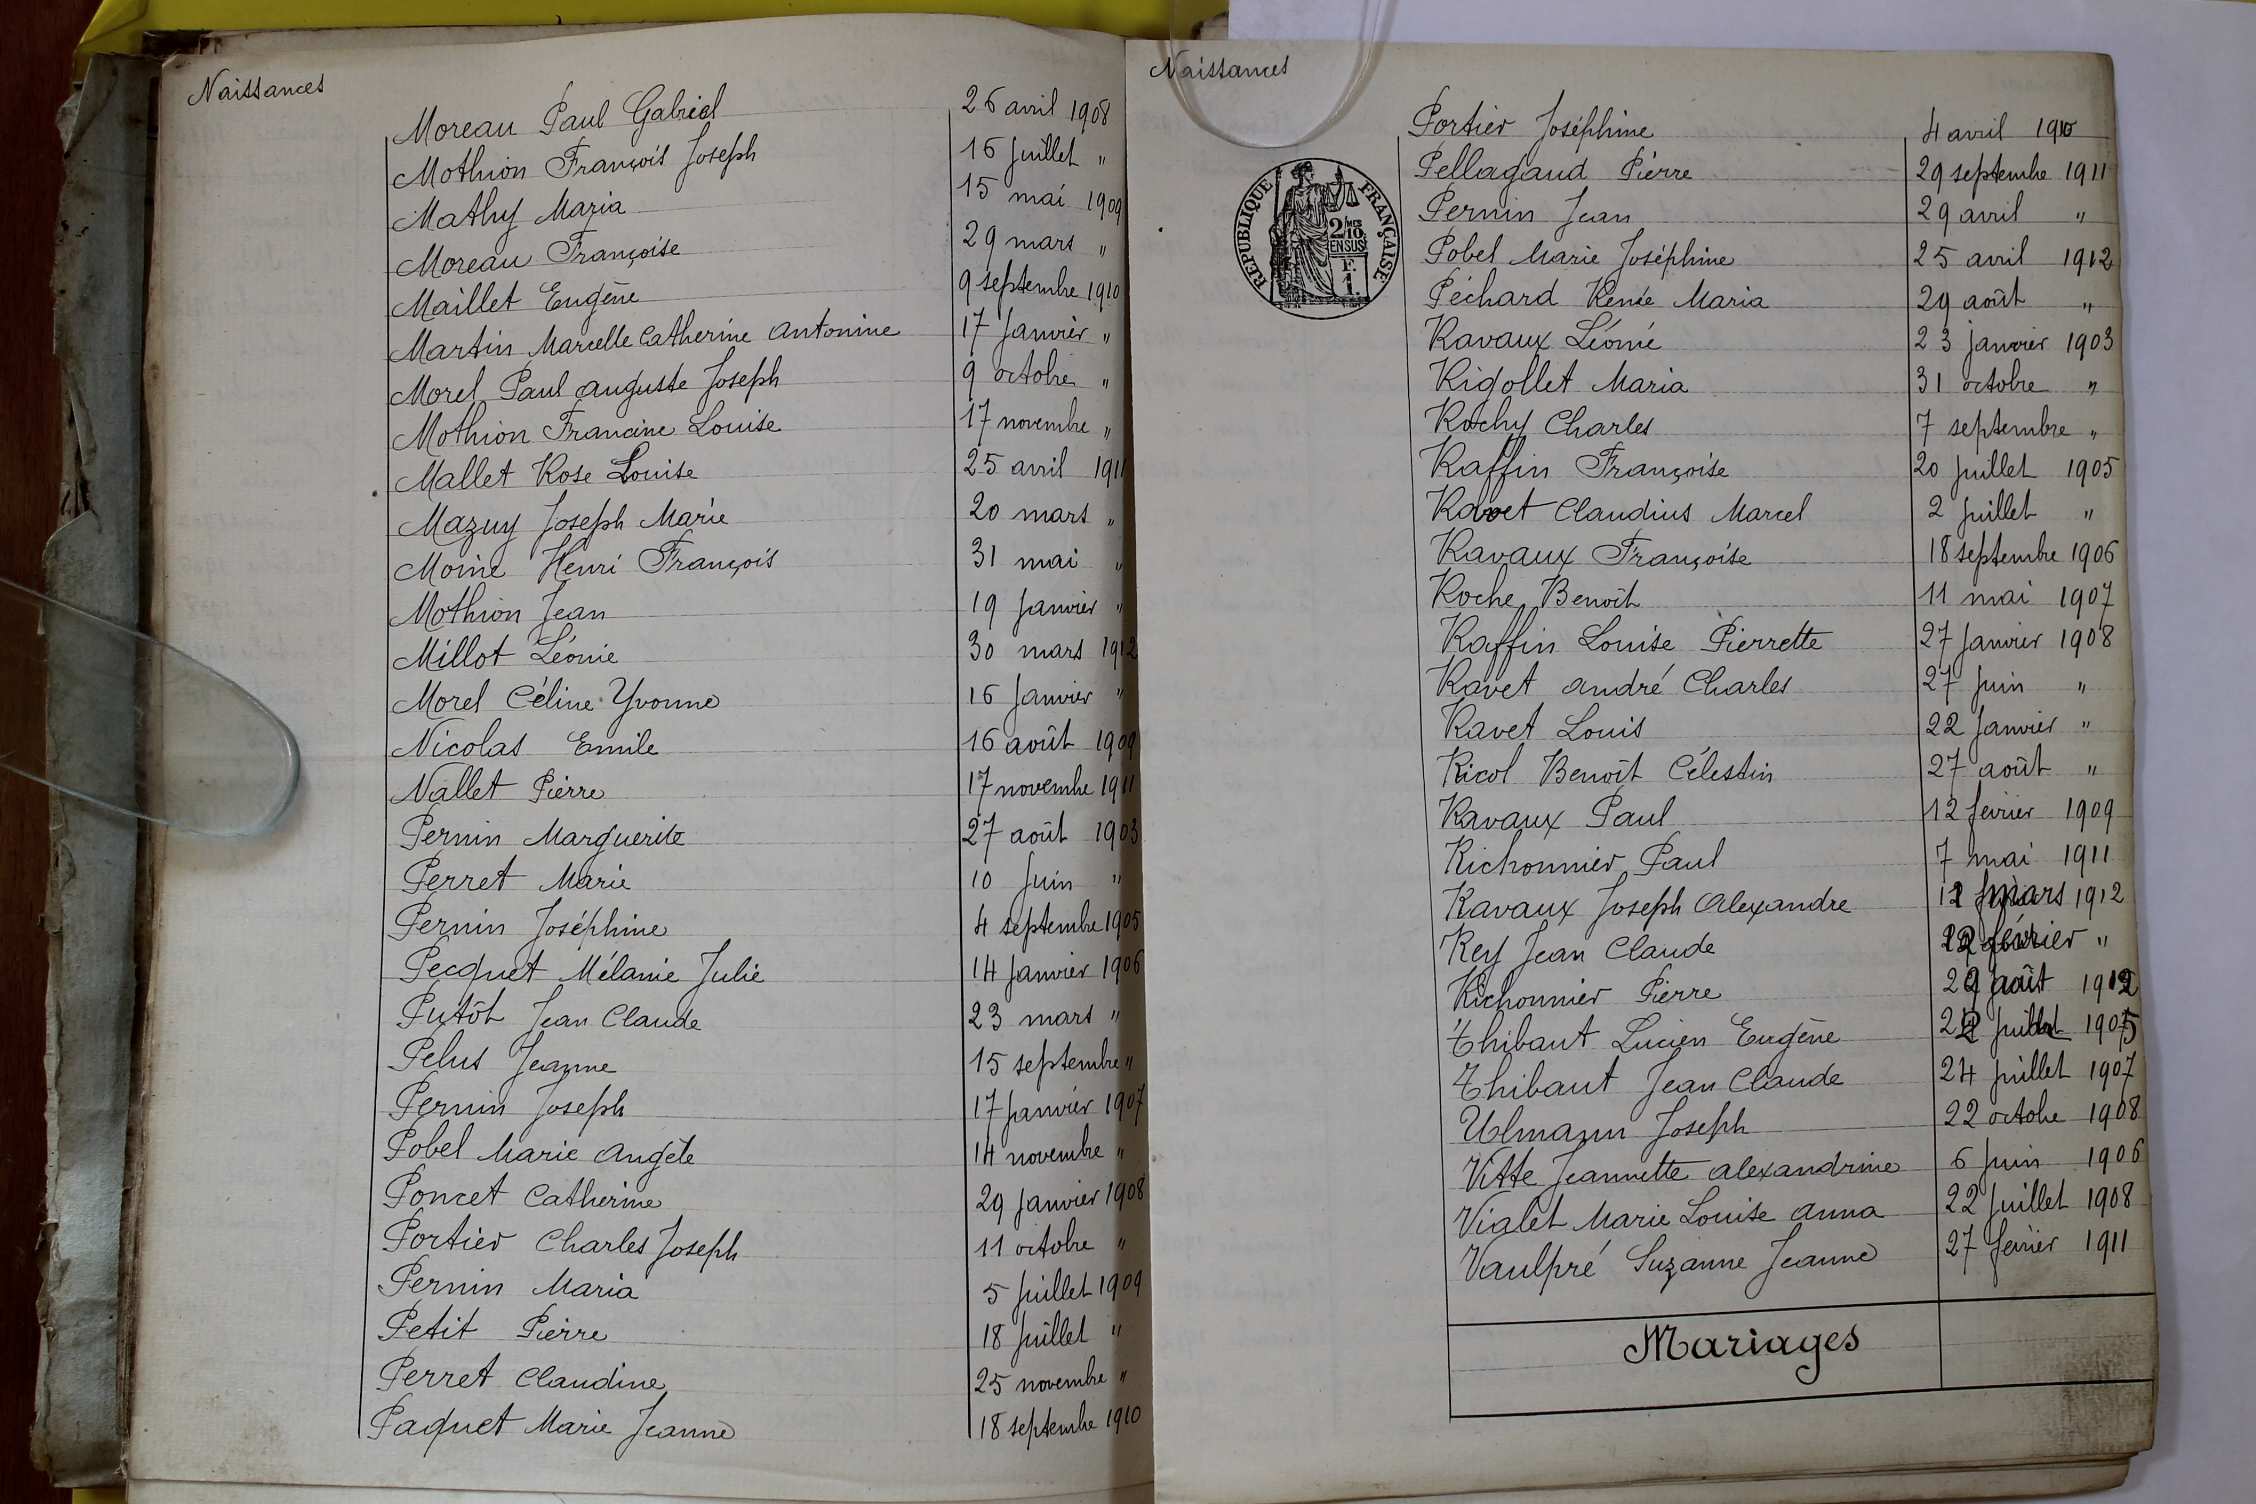 Naissances
Moreau Paul Gabriel 26 avril 1908
Mothion François Joseph 16 juillet "
Mathy Maria 15 mai 1909
Moreau Françoise 29 mars "
Maillet Eugène 9 septembre 1910
Martin Marcelle Catherine Antonine 17 janvier "
Morel Paul Auguste Joseph 9 octobre "
Mothion Francine Louise 17 novembre "
Mallet Rose Louise 25 avril 1911
Mazuy Joseph Marie 20 mars "
Moine Henri François 31 mai "
Mothion Jean 19 janvier "
Millot Léonie 30 mars 1912
Morel Céline Yvonne 16 janvier "
Nicolas Emile 16 août 1909
Nallet Pierre 17 novembre 1911
Pernin Marguerite 27 août 1903
Perret Marie 10 juin "
Pernin Joséphine 4 septembre 1905
Pecquet Mélanie Julie 14 janvier 1906
Putôt Jean Claude 23 mars "
Pelus Jeanne 15 septembre "
Pernin Joseph 17 janvier 1907
Pobel Marie Angèle 14 novembre "
Poncet Catherine 29 janvier 1908
Portier Charles Joseph 11 octobre "
Pernin Maria 5 juillet 1909
Petit Pierre 18 juillet "
Perret Claudine 25 novembre "
Paquet Marie Jeanne 18 septembre 1910
Naissances
Portier Joséphine 4 avril 1910
Pellagaud Pierre 29 septembre 1911
Pernin Jean 29 avril "
Pobel Marie Joséphine 25 avril 1912
Péchard Renée Maria 29 août "
RÉPUBLIQUE FRANÇAISE
2/10 mes
EN SUS
F.
1.
Ravaux Léonie 23 janvier 1903
Rigollet Maria 31 octobre "
Rochy Charles 7 septembre "
Raffin Françoise 20 juillet 1905
Ravet Claudius Marcel 2 juillet "
Ravaux Françoise 18 septembre 1906
Roche Benoît 11 mai 1907
Raffin Louise Pierrette 27 janvier 1908
Ravet André Charles 27 juin "
Ravet Louis 22 janvier "
Ricol Benoît Célestin 27 août "
Ravaux Paul 12 février 1909
Richonnier Paul 7 mai 1911
Ravaux Joseph Alexandre mars 1912
Rey Jean Claude février "
Richonnier Pierre août
Thibaut Lucien Eugène juillet 1905
Thibaut Jean Claude 24 juillet 1907
Ulmann Joseph 22 octobre 1908
Vitte Jeannette Alexandrine 6 juin 1906
Vialet Marie Louise Anna 22 juillet 1908
Vaulpré Suzanne Jeanne 27 février 1911
Mariages